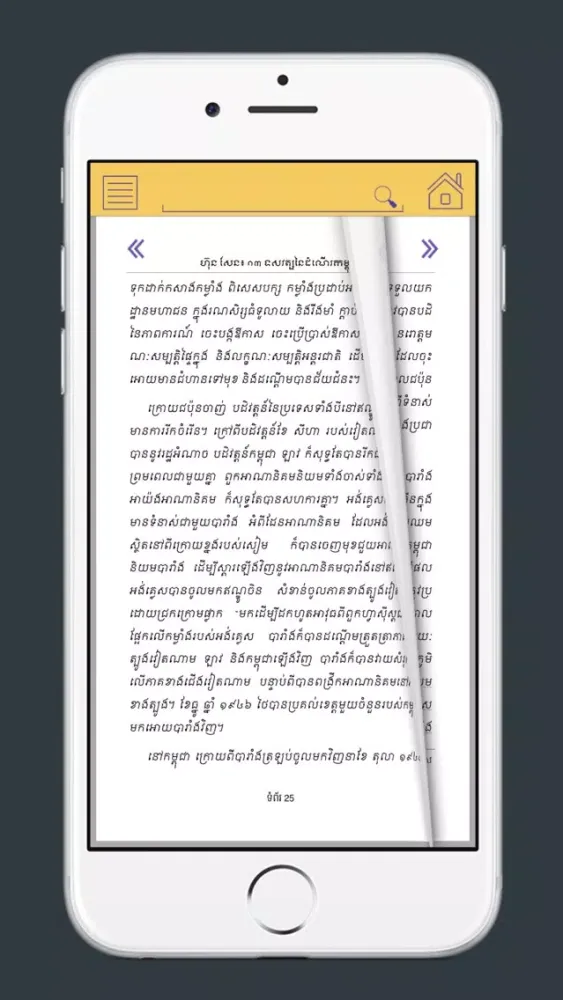 ហ៊ុន សែន៖ ១៣ ទសវត្សនៃដំណើរកម្ពុ
ទុកដាក់កសាងកម្លាំង ពិសេសបក្ស កម្លាំងប្រដាប់អ ទទួលយក
ដ្ឋានមហាជន ក្នុងរណសិរ្សធំទូលាយ និងរឹងមាំ ក្ដាប់ វបានបដិ
នៃភាពការណ៍ ចេះបង្កឱកាស ចេះប្រើប្រាស់ឱកាស នរោត្តម
ណៈសម្បត្តិផ្ទៃក្នុង និងលក្ខណៈសម្បត្តិអន្តរជាតិ ដើ ដែលចុះ
អោយមានជំហានទៅមុខ និងដណ្ដើមបានជ័យជំនះ។ លជប៉ុន
ក្រោយជប៉ុនចាញ់ បដិវត្តន៍នៃប្រទេសទាំងបីនៅឥណ្ឌូ ពីទំនាស់
មានការរីកចំរើន។ ក្រៅពីបដិវត្តន៍ខែ សីហា របស់វៀតណា ងប្រជា
បាននូវរដ្ឋអំណាច បដិវត្តន៍កម្ពុជា ឡាវ ក៏សុទ្ធតែបានរីកជ
ព្រមពេលជាមួយគ្នា ពួកអាណានិគមនិយមទាំងចាស់ទាំង បារាំង
អាយ៉ងអាណានិគម ក៏សុទ្ធតែបានសហការគ្នា។ អង់គ្លេស ើនក្នុង
មានទំនាស់ជាមួយបារាំង អំពីដែនអាណានិគម ដែលអង់ ឈម
ស្ថិតនៅពីក្រោយខ្នងរបស់សៀម ក៏បានចេញមុខជួយអាណា កម្ពុជា
និយមបារាំង ដើម្បីស្ដារឡើងវិញនូវអាណានិគមបារាំងនៅឥ ផល
អង់គ្លេសបានចូលមកឥណ្ឌូចិន សំខាន់ចូលភាគខាងត្បូងវៀត វប្រ
ដោយជ្រកក្រោមផ្លាក មកដើម្បីដកហូតអាវុធពីពួកហ្វាស៊ីស្ត ល
ផ្អែកលើកម្លាំងរបស់អង់គ្លេស បារាំងក៏បានដណ្ដើមត្រួតត្រាភា យៈ
ត្បូងវៀតណាម ឡាវ និងកម្ពុជាឡើងវិញ បារាំងក៏បានវាយសំរុ ភូមិ
លើភាគខាងជើងវៀតណាម បន្ទាប់ពីបានពង្រីកអាណានិគមនៅ រួម
ខាងត្បូង។ ខែធ្នូ ឆ្នាំ ១៩៤៦ ថៃបានប្រគល់ខេត្តមួយចំនួនរបស់កម្ពុ ស
មកអោយបារាំងវិញ។ ង
នៅកម្ពុជា ក្រោយពីបារាំងត្រឡប់ចូលមកវិញនាខែ តុលា ១៩៤
ទំព័រ 25